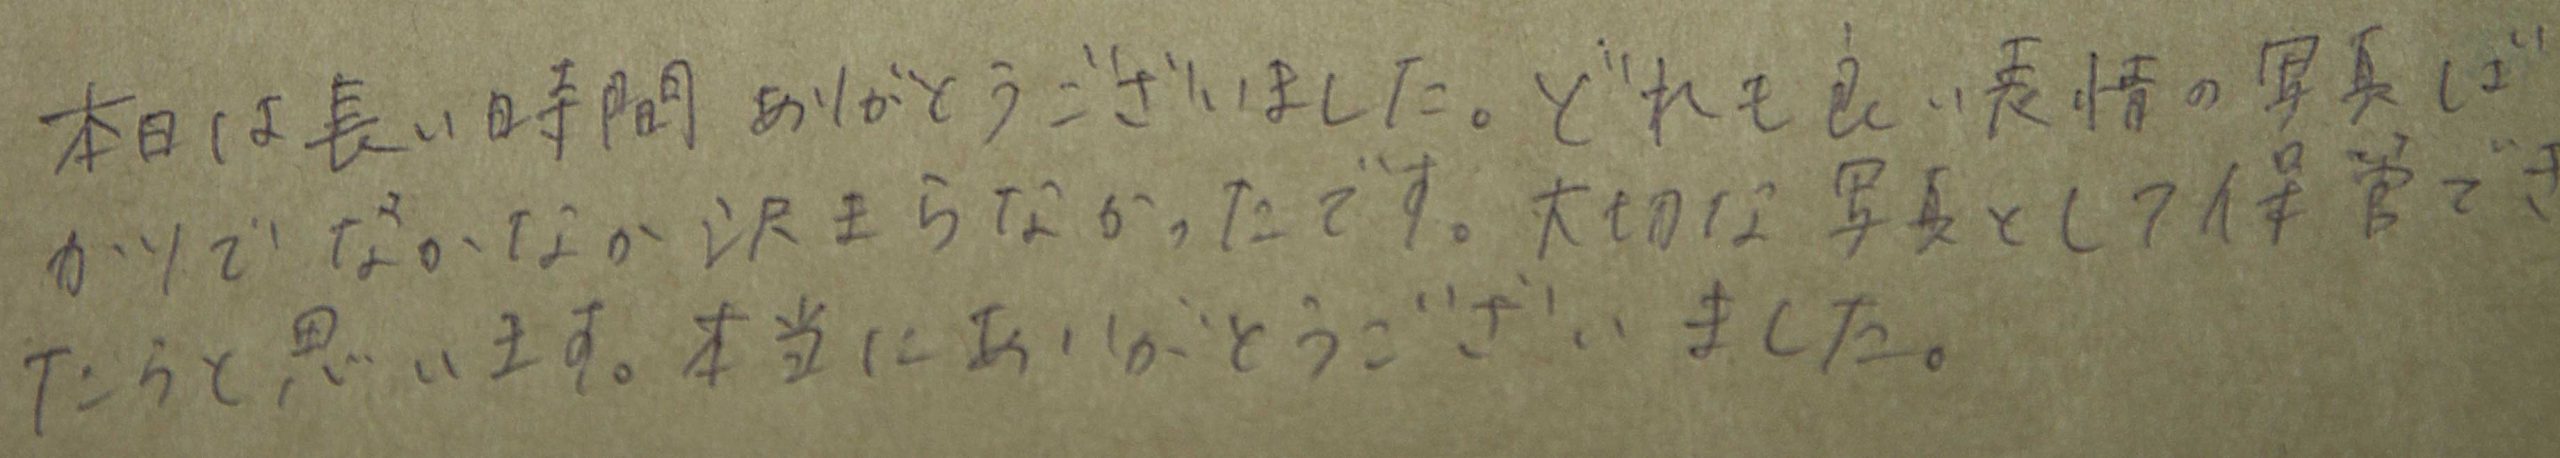 本日は長い時間ありがとうございました。どれも良い表情の写真ば
かりでなかなか決まらなかったです。大切な写真として保管でき
たらと思います。本当にありがとうございました。